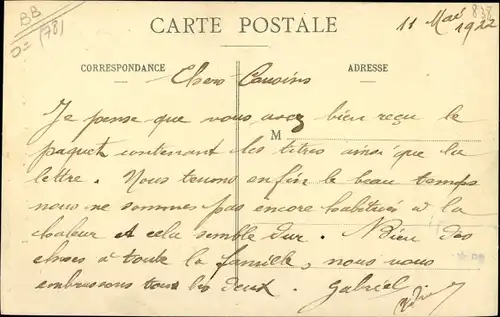 BB
(78)
CARTE POSTALE
838
11 Mai 1922
CORRESPONDANCE
ADRESSE
Chers Cousins
Je pense que vous avez bien reçu le
M
paquet contenant les titres ainsi que la
lettre. Nous tenons enfin le beau temps
nous ne sommes pas encore habitués à la
chaleur et cela semble dur. Bien des
choses à toute la famille, nous vous
embrassons tous les deux. Gabriel